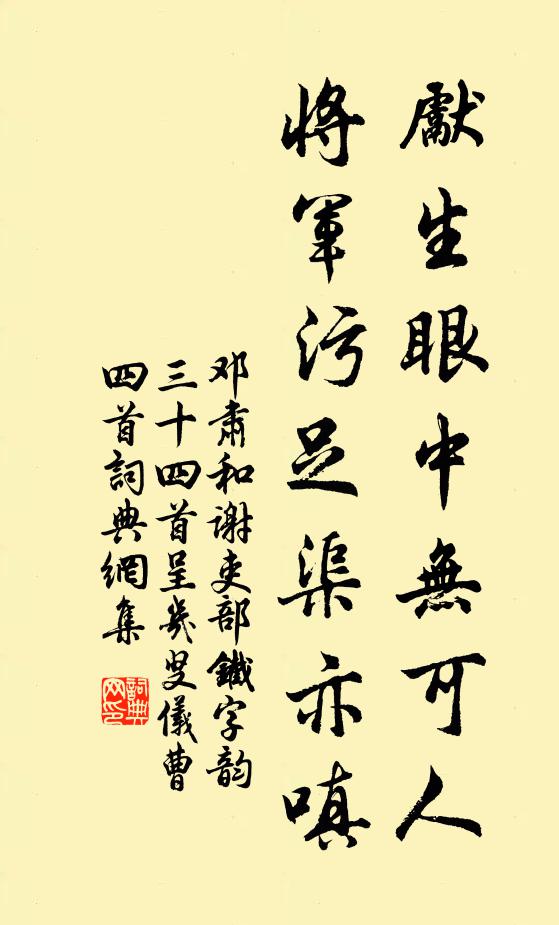 獻生眼中無可人
將軍污足渠亦嗔
邓肅和谢吏部鐵字韵
三十四首呈幾叟儀曹
四首詞典網集
詞典网印